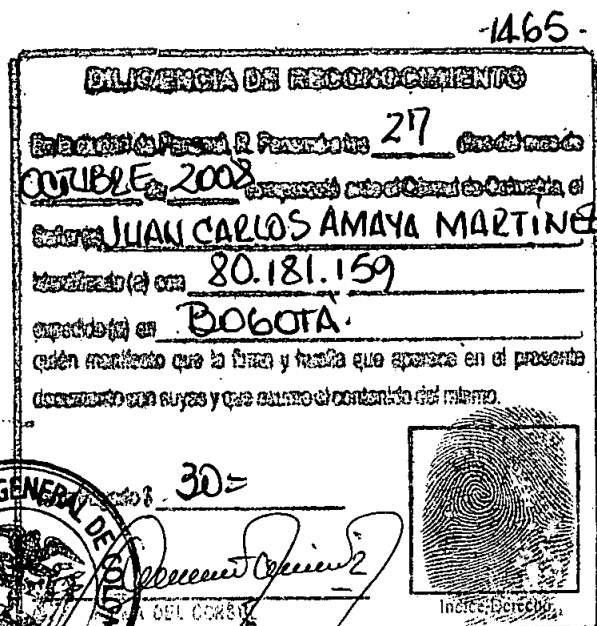 -1465-
DILIGENCIA DE RECONOCIMIENTO
En la ciudad de Panamá, R. Panamá a los 27 días del mes de
OCTUBRE de 2008 compareció ante el Cónsul de Colombia, el
Señor (a) JUAN CARLOS AMAYA MARTINEZ
identificado (a) con 80.181.159
expedida (a) en BOGOTÁ.
quién manifiesto que la firma y huella que aparece en el presente
documento son suyas y que asume el contenido del mismo.
GENERAL DE COLO
$ 30=
DEL CONSUL
Indice Derecho